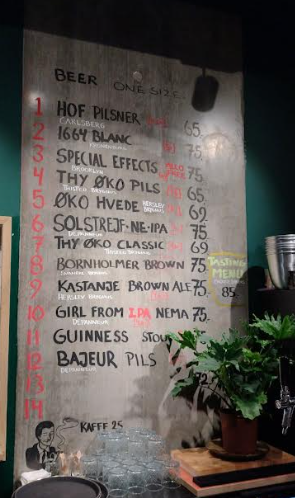 BEER ONE SIZE
1 HOF PILSNER 65
CARLSBERG
2 1664 BLANC 75
3 SPECIAL EFFECTS 75
BROOKLYN
4 THY ØKO PILS 65
THISTED BRYGHUS
5 ØKO HVEDE HERSLEV BRYGHUS 69
6 SOLSTREJF-NE-IPA 75
7 THY ØKO CLASSIC 69
THISTED BRYGHUS
8 BORNHOLMER BROWN 75
9 KASTANJE BROWN ALE 75
HERSLEV BRYGHUS
10 GIRL FROM IPA NEMA 75
DEPANNEUR
11 GUINNESS STOUT
12 BAJEUR PILS
DEPANNEUR
13
14
TASTING MENU
85
KAFFE 25